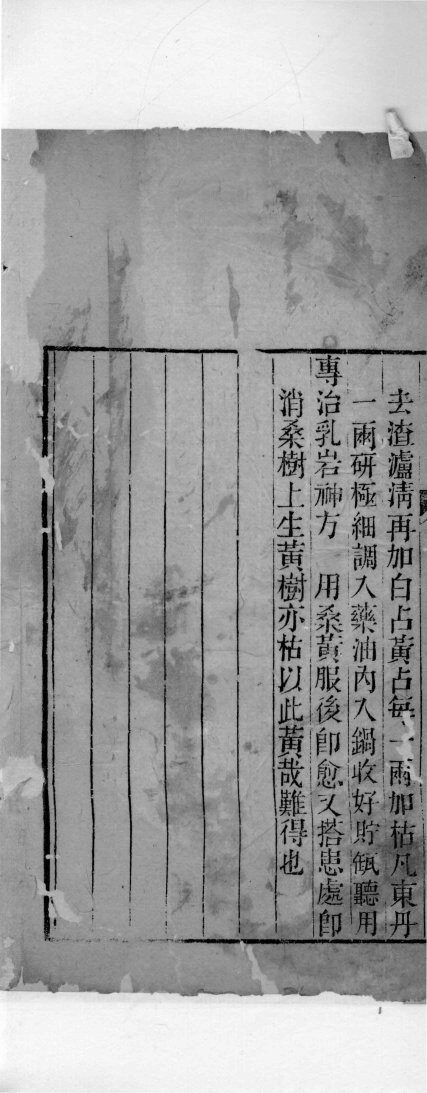 去渣瀘淸再加白占黃占每一兩加枯凡東丹
一兩研極細調入藥油內入鍋收好貯缻聽用
專治乳岩神方　用桑黃服後卽愈又搭患處卽
消桑樹上生黃樹亦枯以此黃哉難得也